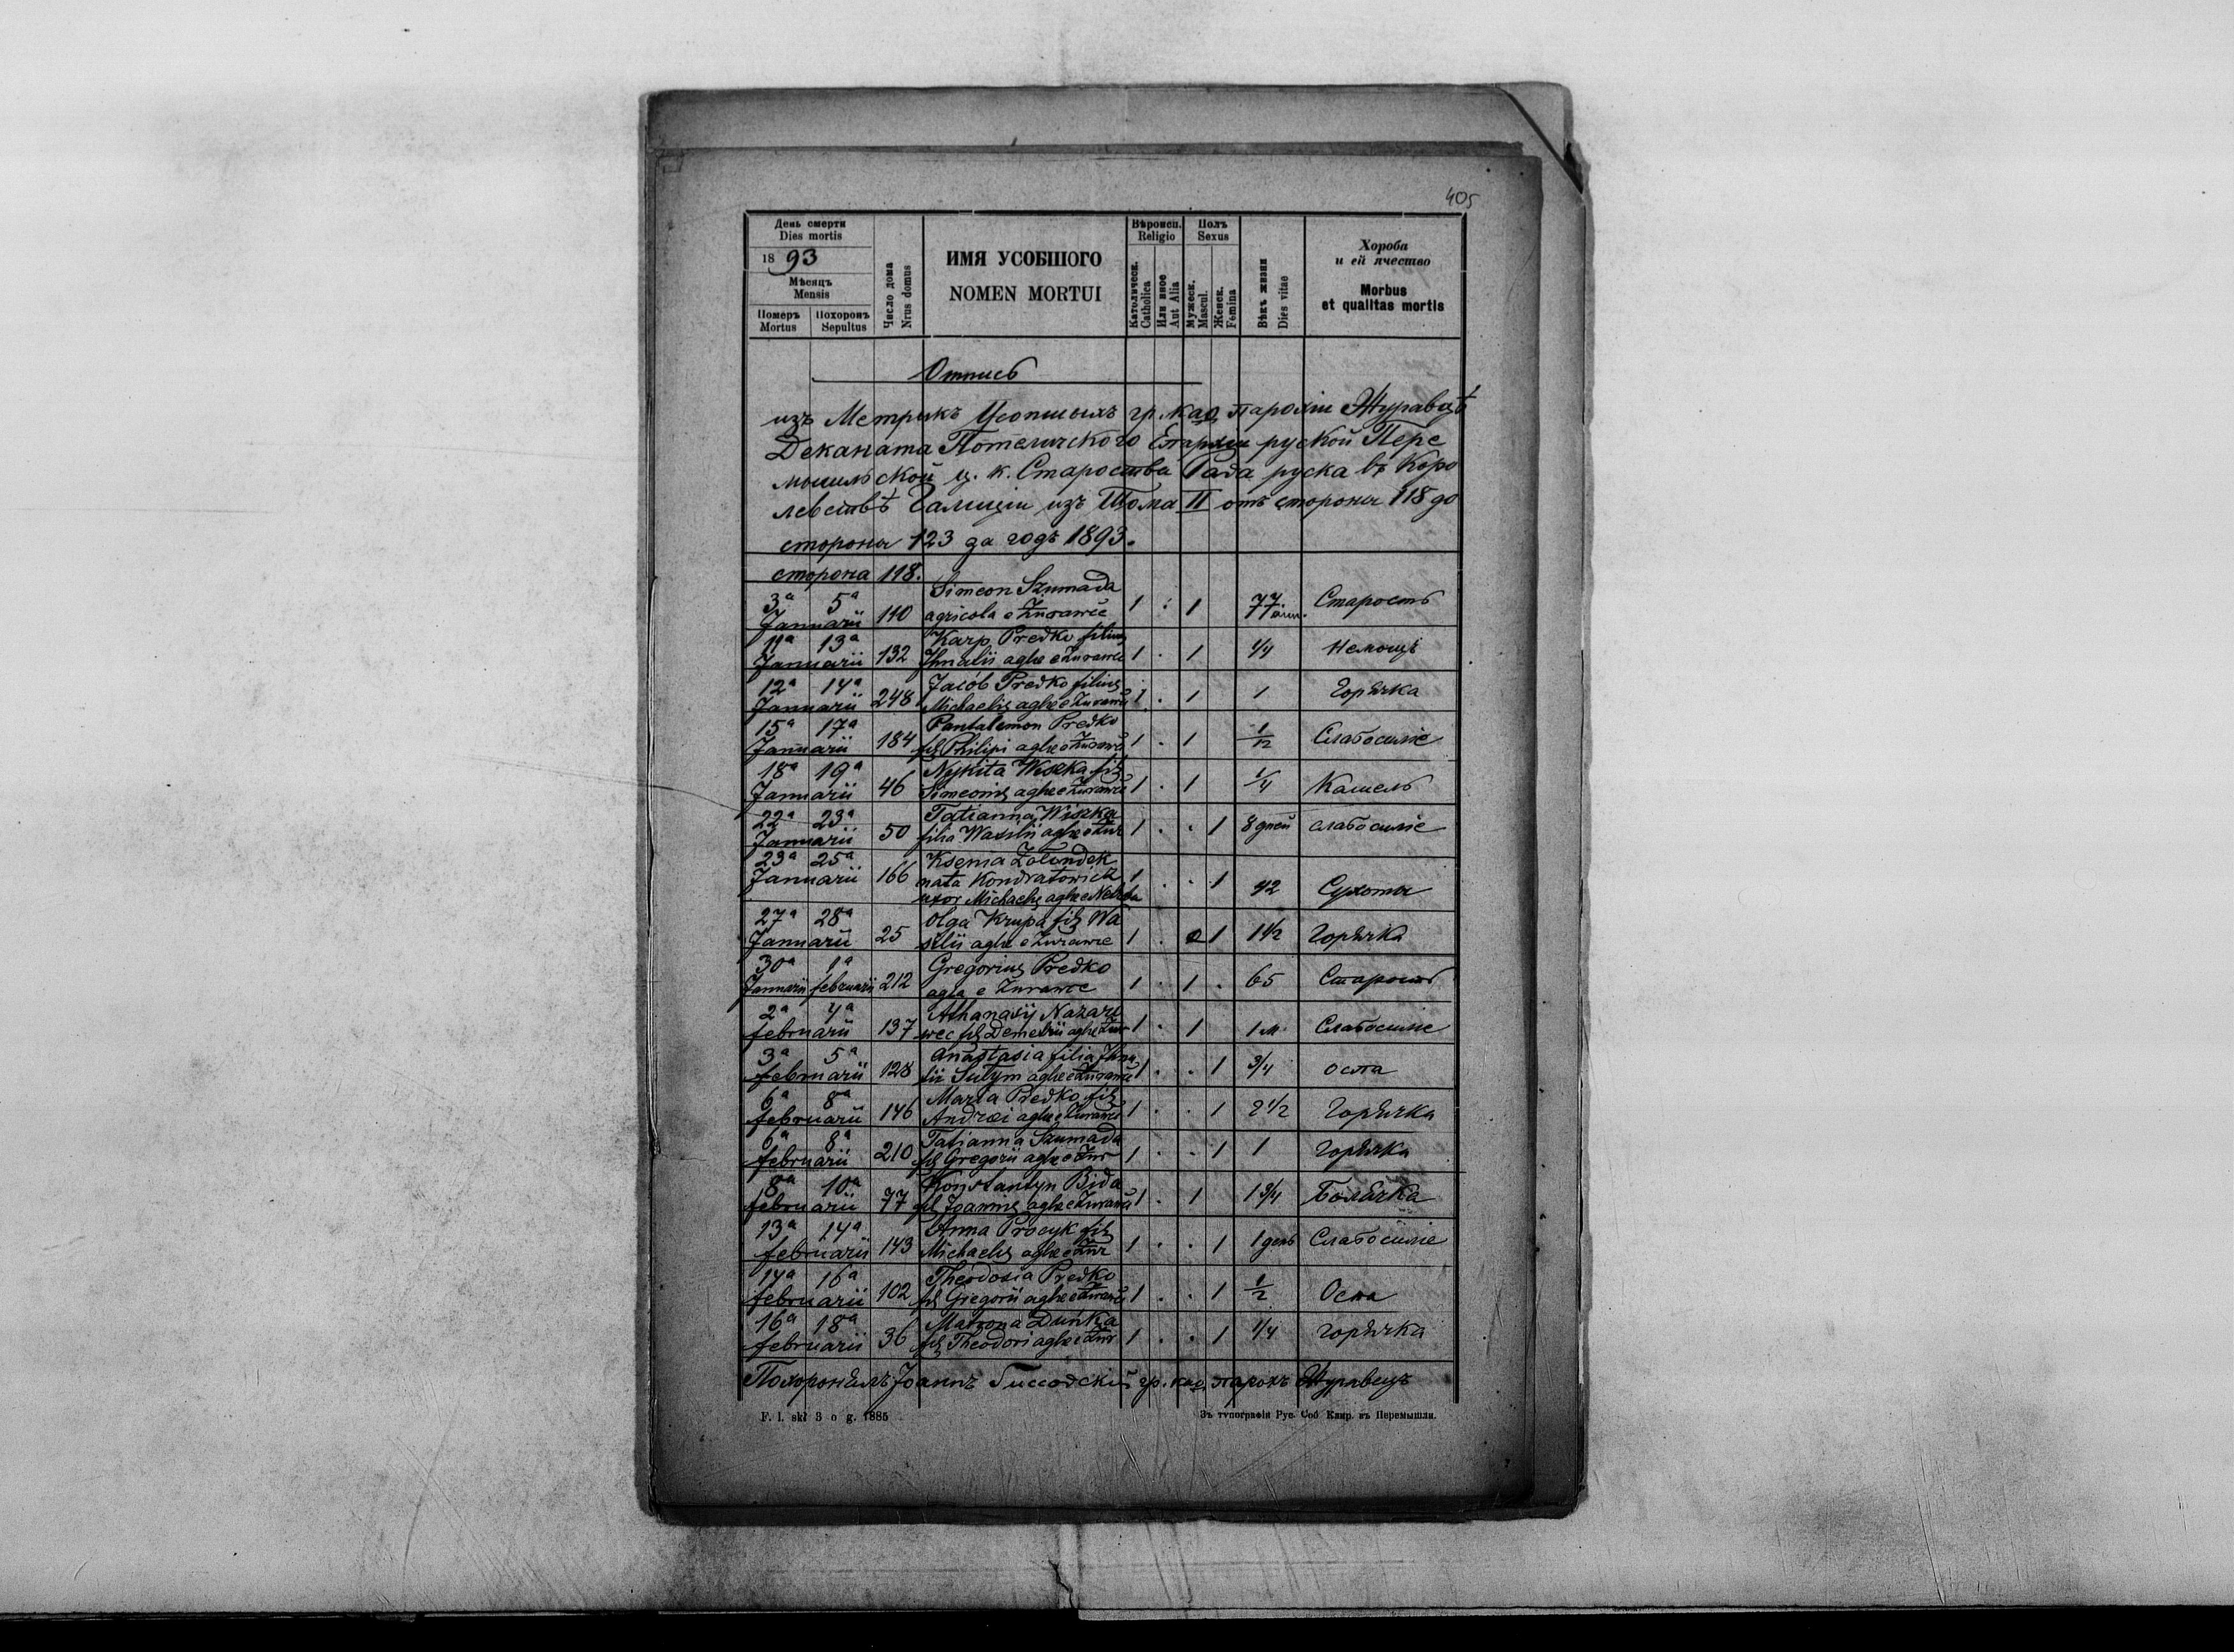 405
День смерти
Dies mortis
1893
Мѣсяцъ
Mensis
Померъ Похоронъ
Mortus Sepultus
Число дома
Nrus domus
ИМЯ УСОБШОГО
NOMEN MORTUI
Вѣроисп.
Religio
Католическ.
Catholica
Или иное
Aut Alia
Полъ
Sexus
Мужеск.
Mascul.
Женск.
Femina
Вѣкъ жизни
Dies vitae
Хороба
и ей ячество
Morbus
et qualitas mortis
Отпись
изъ Метрикъ Усопшыхъ гр. каѳ парохіи Журавцѣ
Деканата Потеличского Епархіи руской Пере
мышльской ц. к. Староства Рава руска въ Коро
левствѣ Галиціи изъ Тома II отъ стороны 118 до
стороны 123 за годъ 1893.
сторона 118.
3ª 5ª Januarii 110 Simeon Szumada
agricola e Żurawce 1 . 1 77 Старость
11ª 13ª Januarii 132 Karp Predko filius
Ihnatii aglae e Żurawce 1 . 1 1/4 Немощь
12ª 14ª Januarii 248 Jacób Predko filius
Michaelis aglae e Żurawce 1 . 1 1 Горячка
15ª 17ª Januarii 184 Pantalemon Predko
fil Philipi aglae e Żurawce 1 . 1 1/12 Слабосиліе
18ª 19ª Januarii 46 Nykita Wiszka fil
Simeonis aglae e Żurawce 1 . 1 1/4 Кашель
22ª 23ª Januarii 50 Tatianna Wiszka
filia Wasilii aglae e Żur 1 . . 1 8 дней слабосиліе
23ª 25ª Januarii 166 Ksenia Żołondek
nata Kondratowicz
uxor Michaelis aglae 1 . . 1 42 Сухоты
27ª 28ª Januarii 25 Olga Krupa fil Wa
silii aglae e Żurawce 1 . 1 1 1/2 Горячка
30ª 1ª Januarii februarii 212 Gregorius Predko
agla e Żurawce 1 . 1 . 65 Старость
2ª 4ª februarii 137 Athanasij Nazare
wec fil Demetrii aglae e Żur 1 . 1 1 м. Слабосиліе
3ª 5ª februarii 128 Anastasia filia Ihna
tii Sutym aglae e Żurawce 1 . . 1 3/4 оспа
6ª 8ª februarii 146 Maria Predko fil
Andrei aglae e Żurawce 1 . . 1 2 1/2 Горячка
6ª 8ª februarii 210 Tatianna Szumada
fil Gregorii aglae e Żur 1 . . 1 1 горячка
8ª 10ª februarii 77 Konstantyn Bida
fil Joannis aglae e Żurawce 1 . 1 1 3/4 Болячка
13ª 14ª februarii 143 Anna Procyk fil
Michaelis aglae e Żur 1 . . 1 1 день Слабосиліе
14ª 16ª februarii 102 Theodosia Predko
fil Gregorii aglae e Żurawce 1 . . 1 1/2 Оспа
16ª 18ª februarii 36 Matrona Duńka
fil Theodori aglae e Żur 1 . . 1 1/4 горячка
Похоронилъ Іоаннъ гр. каѳ. парохъ Журавецъ
F. l. skł 3 o g. 1885
Зъ типографіи Рус. Соб Клир. въ Перемышли.